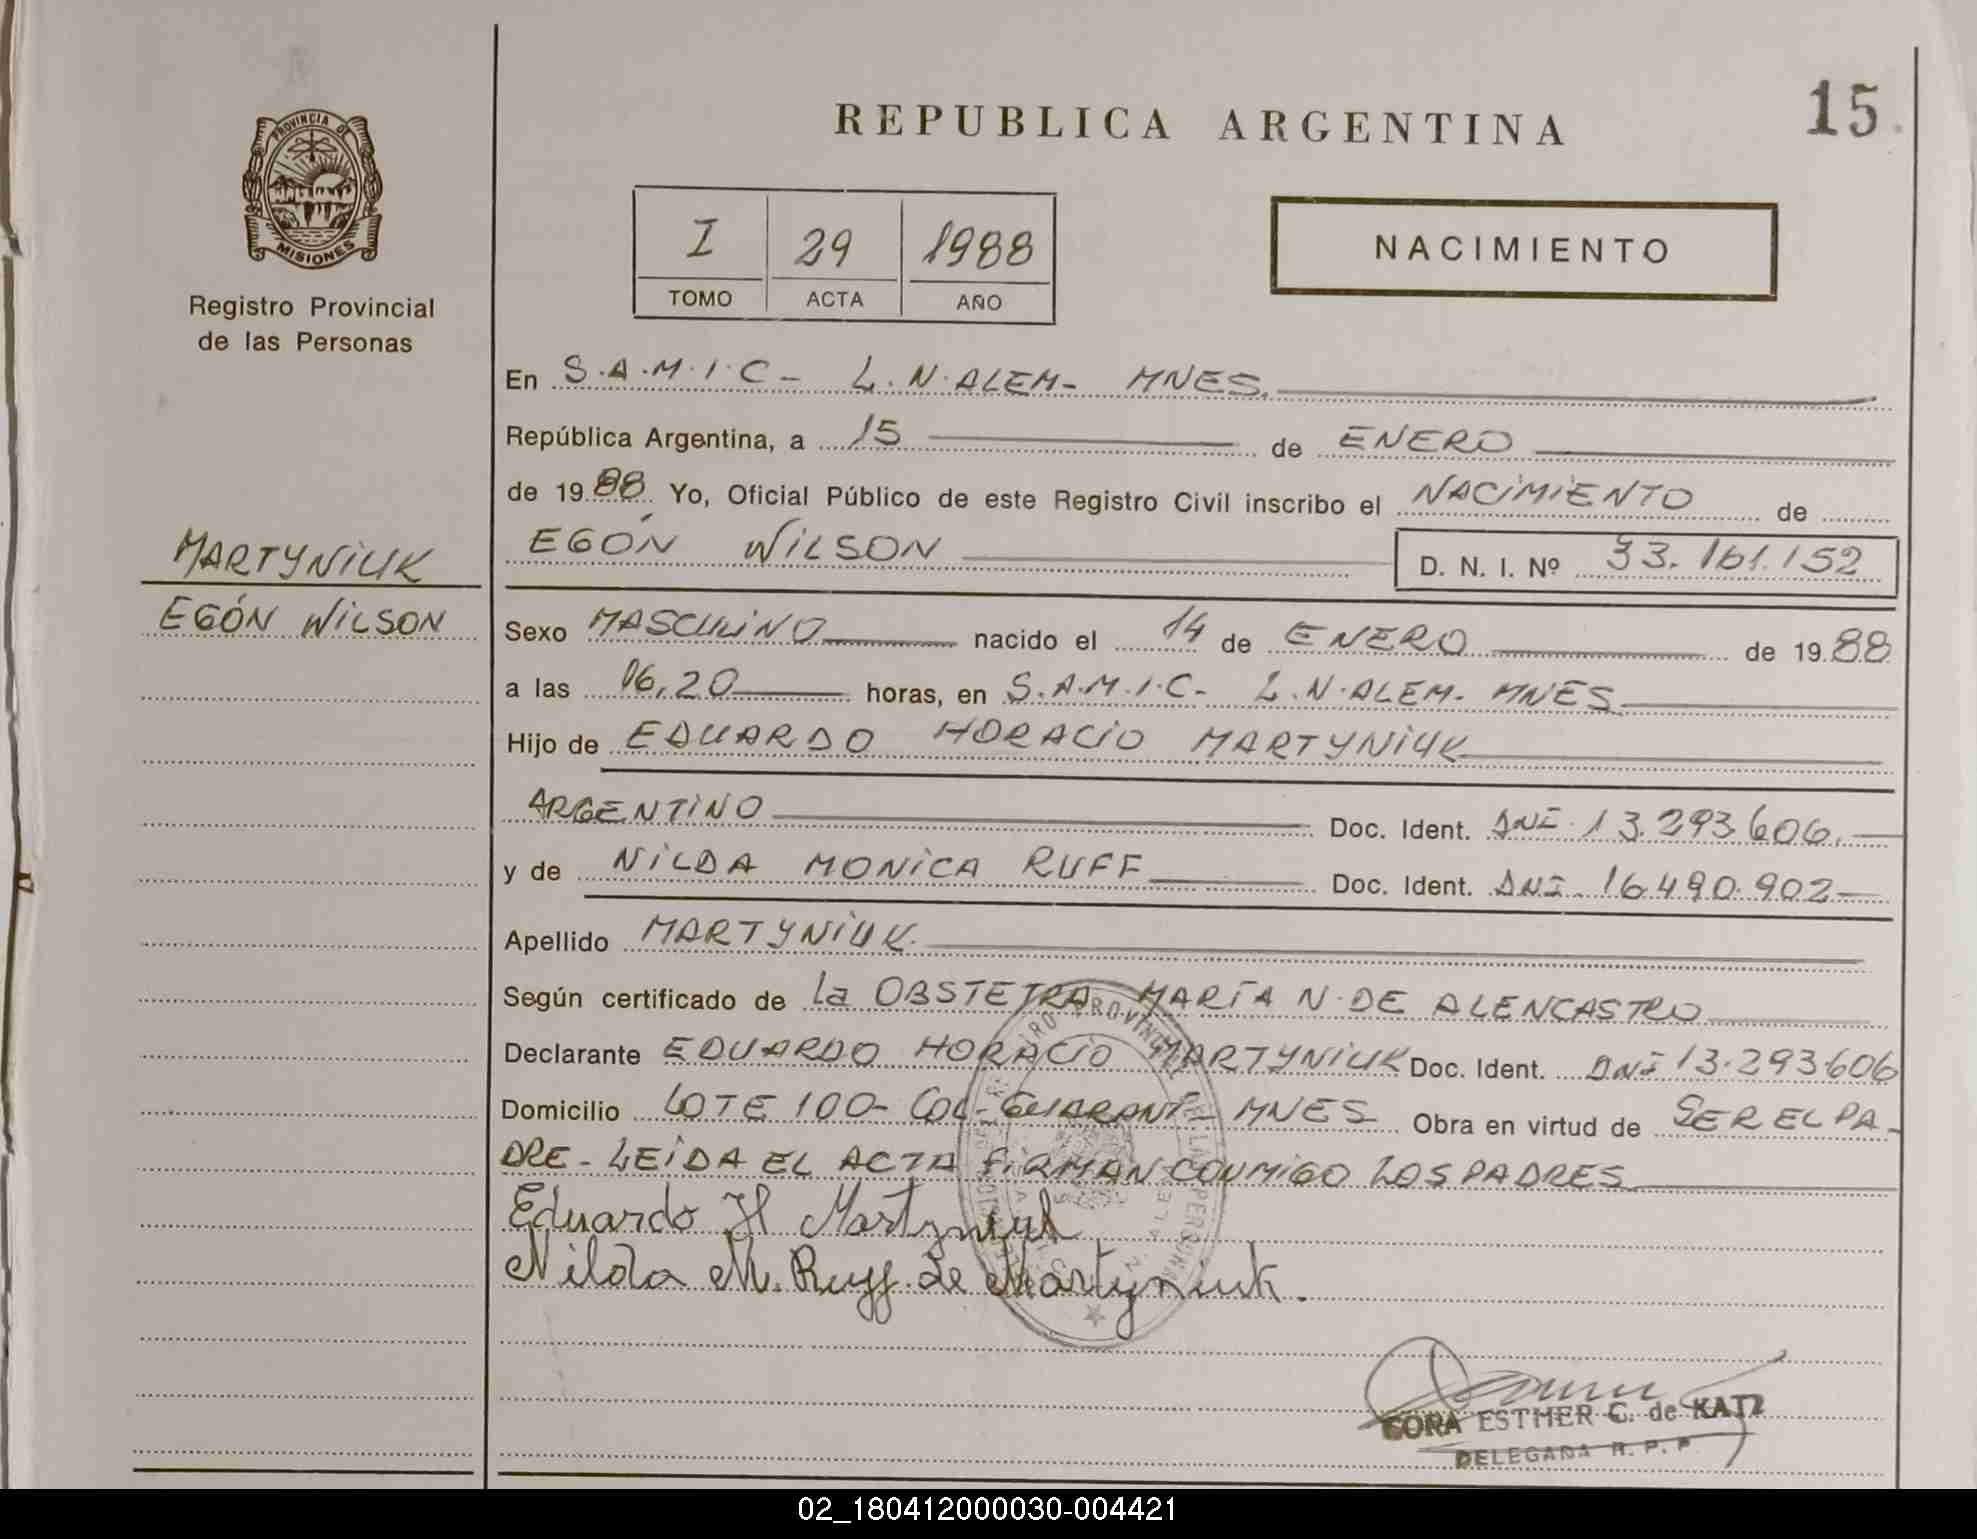 REPUBLICA ARGENTINA
15
PROVINCIA DE
MISIONES
Registro Provincial
de las Personas
I 29 1988
TOMO ACTA AÑO
NACIMIENTO
En S.A.M.I.C- L.N.ALEM- MNES.
República Argentina, a 15 de ENERO
de 1988 Yo, Oficial Público de este Registro Civil inscribo el NACIMIENTO de
EGÓN WILSON D. N. I. Nº 33.161.152
MARTYNIUK
EGÓN WILSON
Sexo MASCULINO nacido el 14 de ENERO de 1988
a las 06,20 horas, en S.A.M.I.C- L.N.ALEM- MNES
Hijo de EDUARDO HORACIO MARTYNIUK
ARGENTINO Doc. Ident. DNI 13.293.606.
y de NILDA MONICA RUFF Doc. Ident. DNI. 16.490.902
Apellido MARTYNIUK.
Según certificado de la OBSTETRA MARÍA N. DE ALENCASTRO
Declarante EDUARDO HORACIO MARTYNIUK Doc. Ident. DNI 13.293606
Domicilio LOTE 100- COL- GUARANI- MNES Obra en virtud de SER EL PA-
DRE- LEIDA EL ACTA FIRMAN CONMIGO LOS PADRES
Eduardo H Martyniuk
Nilda M. Ruff de Martyniuk.
CORA ESTHER C. de KATZ
DELEGADA R. P. P.
02_180412000030-004421